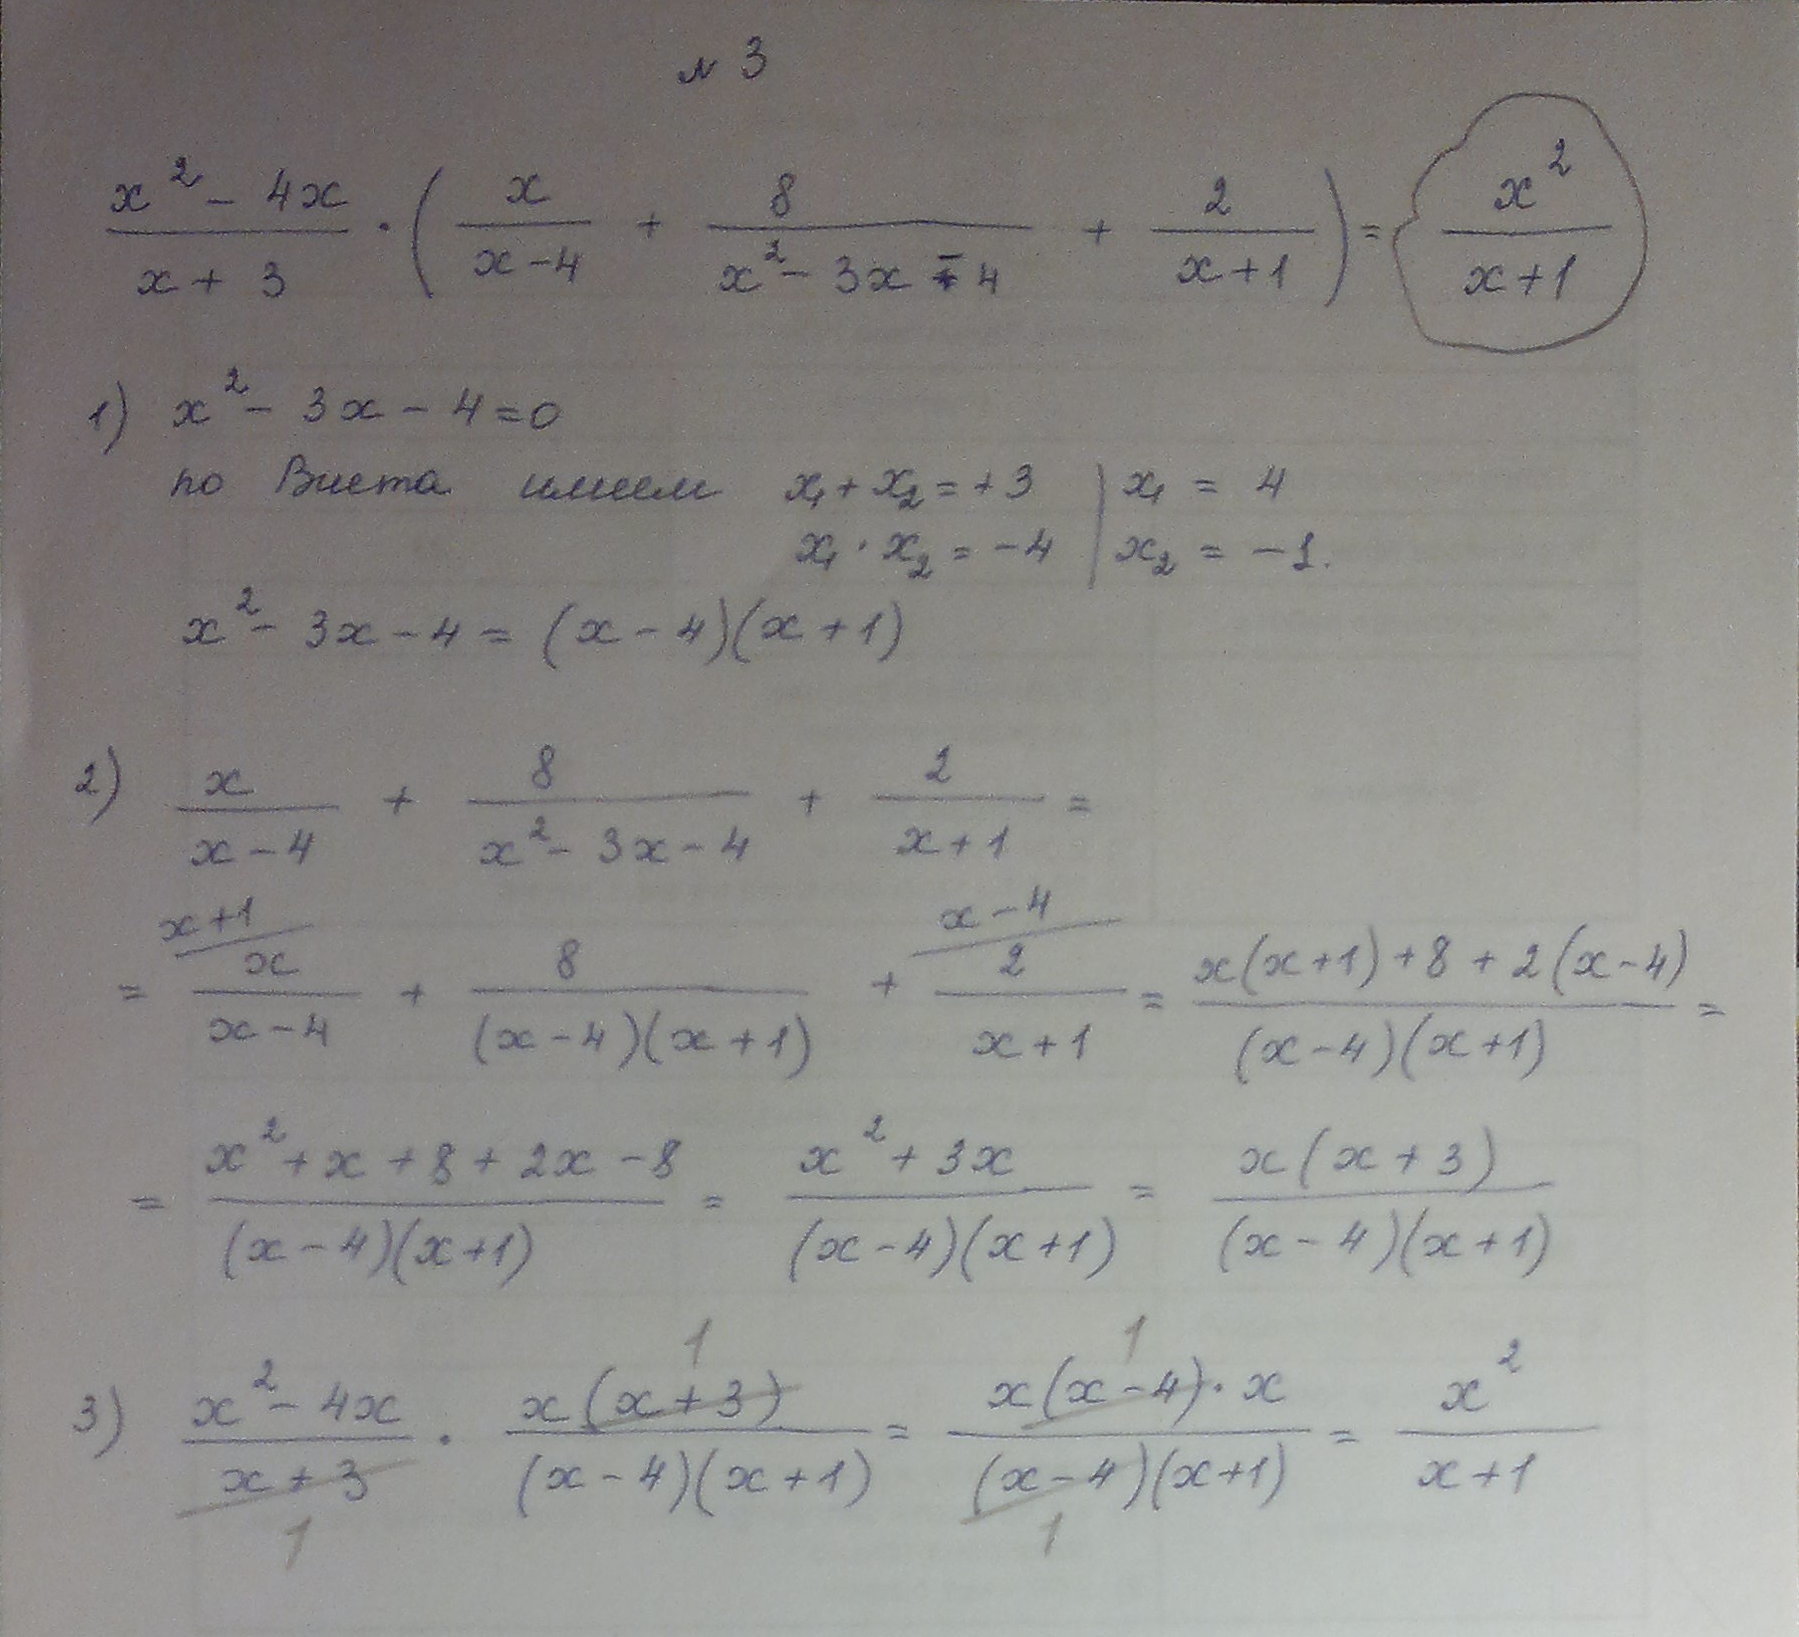 № 3
(x² - 4x)/(x + 3) · (x/(x - 4) + 8/(x² - 3x - 4) + 2/(x + 1)) = x²/(x + 1)
1) x² - 3x - 4 = 0
по Виета имеем x₁ + x₂ = +3 | x₁ = 4
x₁ · x₂ = -4 | x₂ = -1.
x² - 3x - 4 = (x - 4)(x + 1)
2) x/(x - 4) + 8/(x² - 3x - 4) + 2/(x + 1) =
x + 1 x - 4
= x/(x - 4) + 8/((x - 4)(x + 1)) + 2/(x + 1) = (x(x + 1) + 8 + 2(x - 4))/((x - 4)(x + 1)) =
= (x² + x + 8 + 2x - 8)/((x - 4)(x + 1)) = (x² + 3x)/((x - 4)(x + 1)) = (x(x + 3))/((x - 4)(x + 1))
1 1
3) (x² - 4x)/(x + 3) · (x(x + 3))/((x - 4)(x + 1)) = (x(x - 4) · x)/((x - 4)(x + 1)) = x²/(x + 1)
1 1